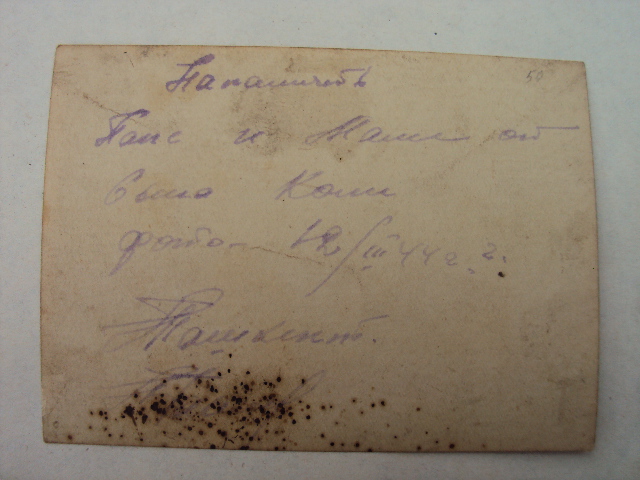 На память
50
Папе и Маме от
сына Коли
фото 12/III 44 г. г.
Ташкент.